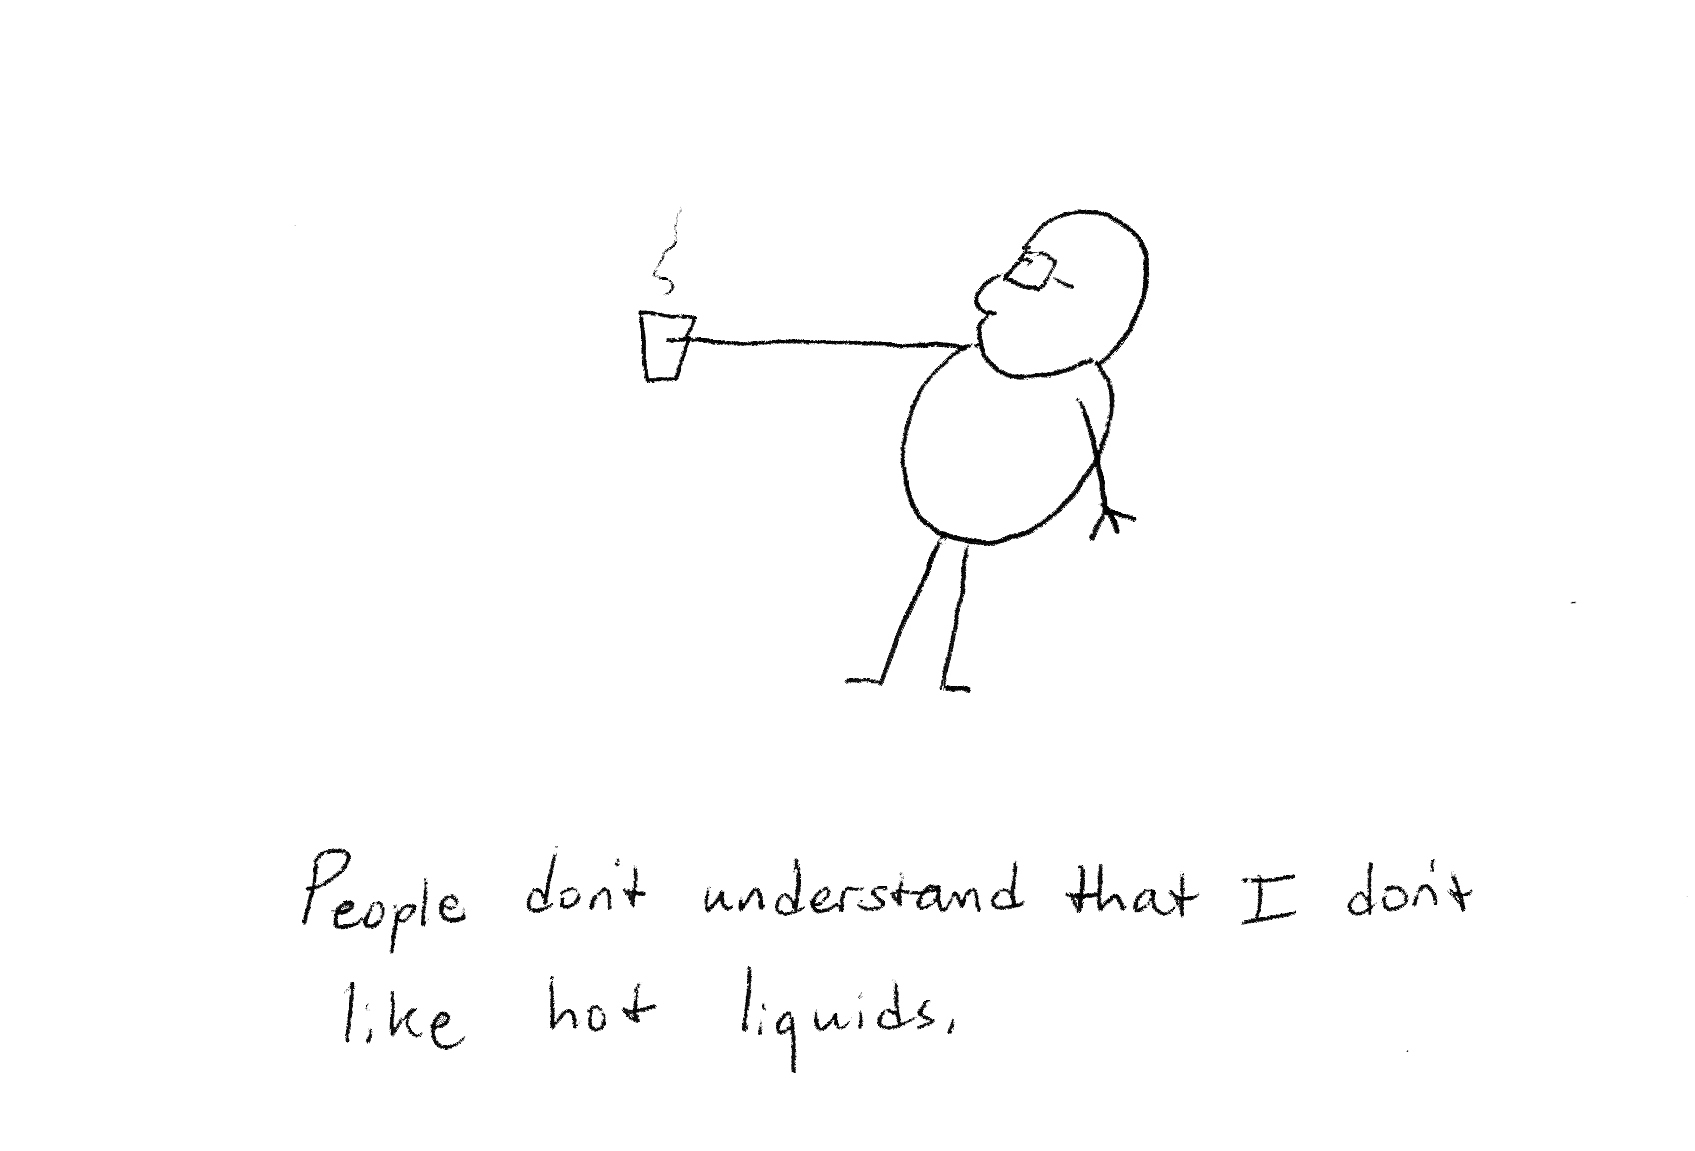 People don't understand that I don't
like hot liquids.